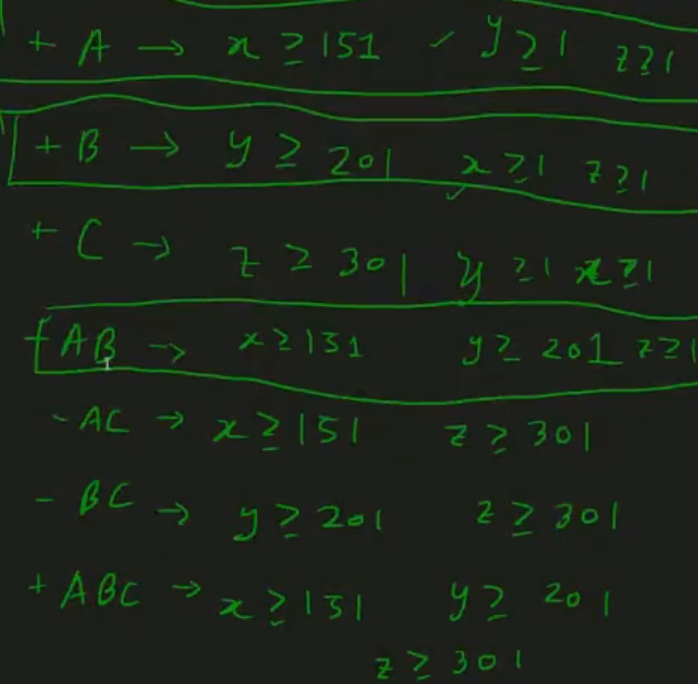 + A → x ≥ 151 ✓ y ≥ 1 z ≥ 1
+ B → y ≥ 201 x ≥ 1 z ≥ 1
+ C → z ≥ 301 y ≥ 1 x ≥ 1
AB → x ≥ 151 y ≥ 201 z ≥ 1
- AC → x ≥ 151 z ≥ 301
- BC → y ≥ 201 z ≥ 301
+ ABC → x ≥ 151 y ≥ 201
z ≥ 301